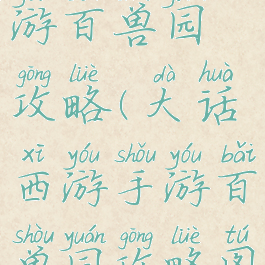 游百兽园
gōng lüè dà huà
攻略(大话
xī yóu shǒu yóu bǎi
西游手游百
shòu yuán gōng lüè tú
兽园攻略图